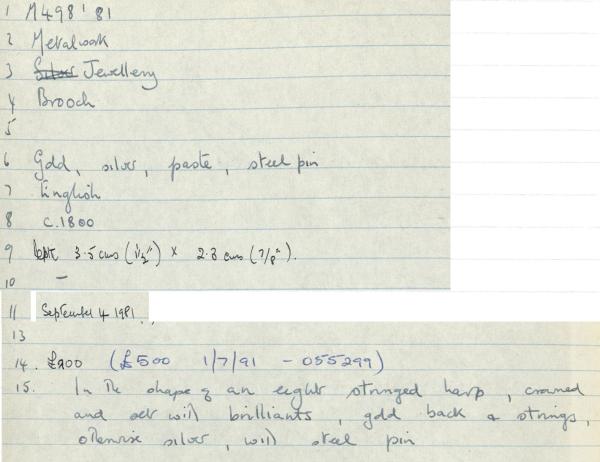 1 M498'81
2 Metalwork
3 Silver Jewellery
4 Brooch
5
6 Gold, silver, paste, steel pin
7 English
8 c.1800
9 3.5 cms (1½") x 2.3 cms (7/8").
10 –
11 September 4 1981
13
14. £200 (£500 1/7/91 - 055299)
15. In the shape of an eight stringed harp, crowned
and set with brilliants, gold back & strings,
otherwise silver, with steel pin